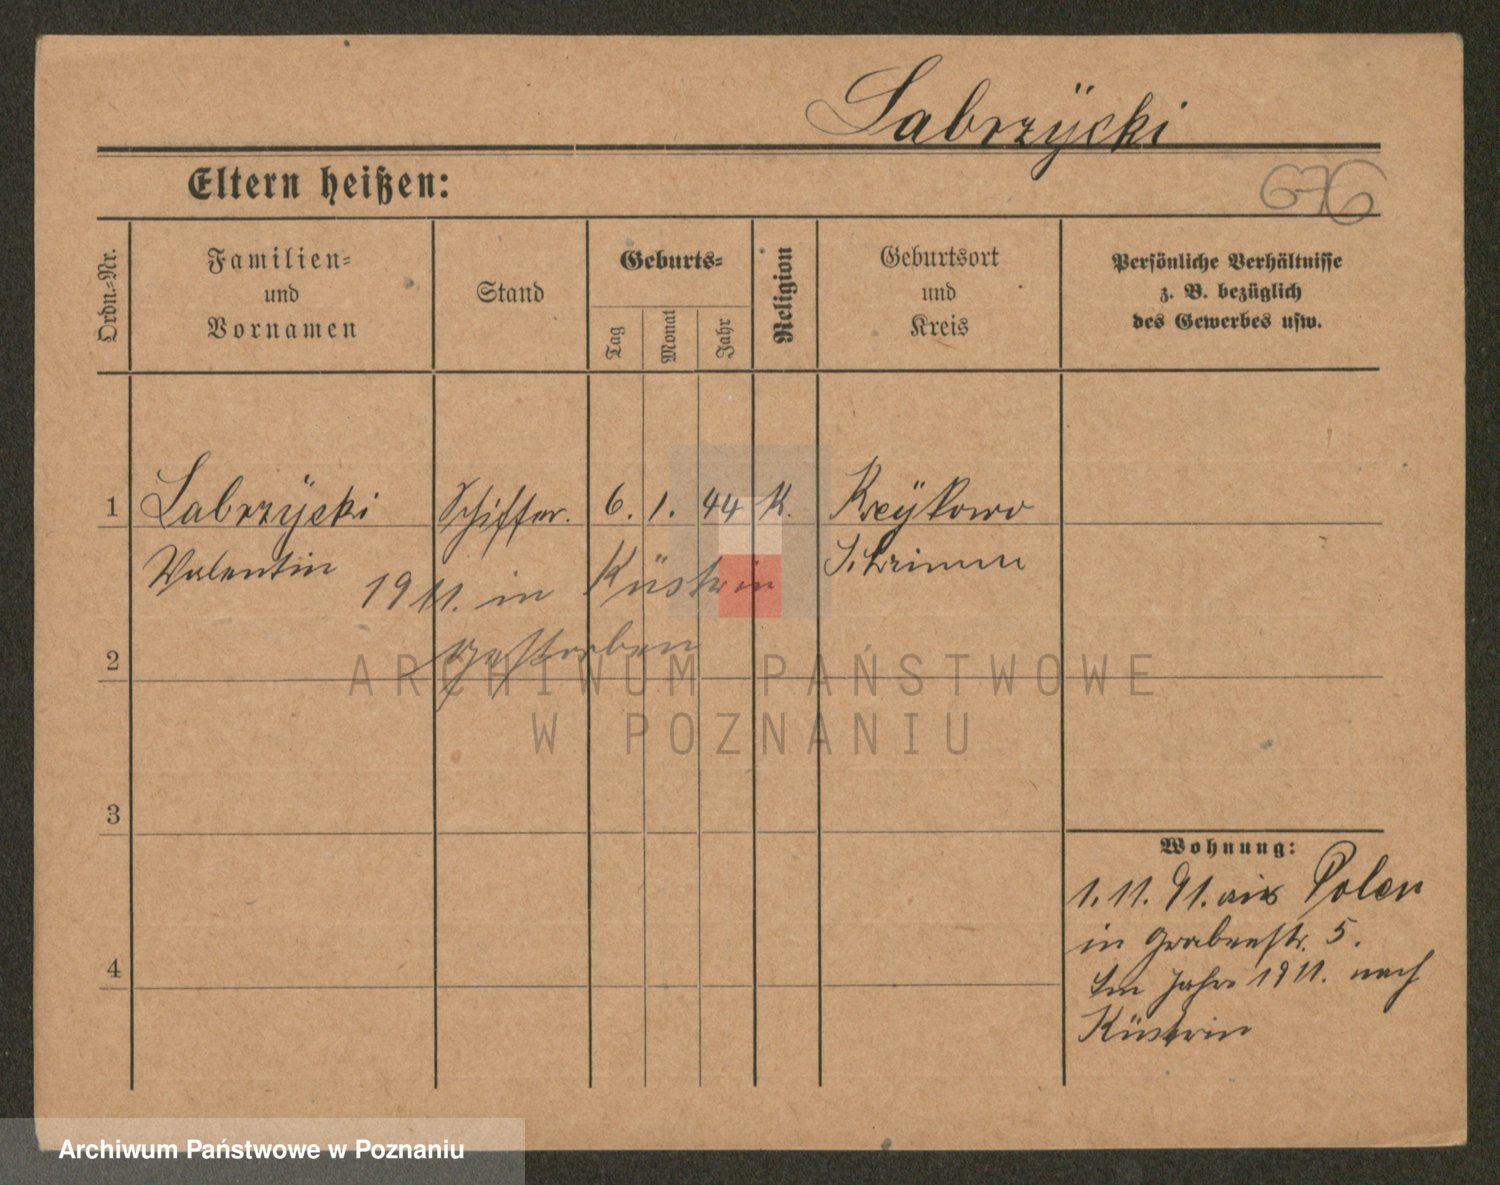 Labrzÿcki
Eltern heißen:
676
Ordn.-Nr.
Familien-
und
Vornamen
Stand
Geburts-
Tag
Monat
Jahr
Religion
Geburtsort
und
Kreis
Persönliche Verhältnisse
z. B. bezüglich
des Gewerbes usw.
1 Labrzÿcki Schiffer. 6. 1. 44 K.
Valentin Schrimm
1911. in Küstrin
gestorben
2
ARCHIWUM PAŃSTWOWE
W POZNANIU
3
Wohnung:
1. 11. 91. aus Polen
in Grabenstr. 5.
4
Im Jahre 1911. nach
Küstrin
Archiwum Państwowe w Poznaniu